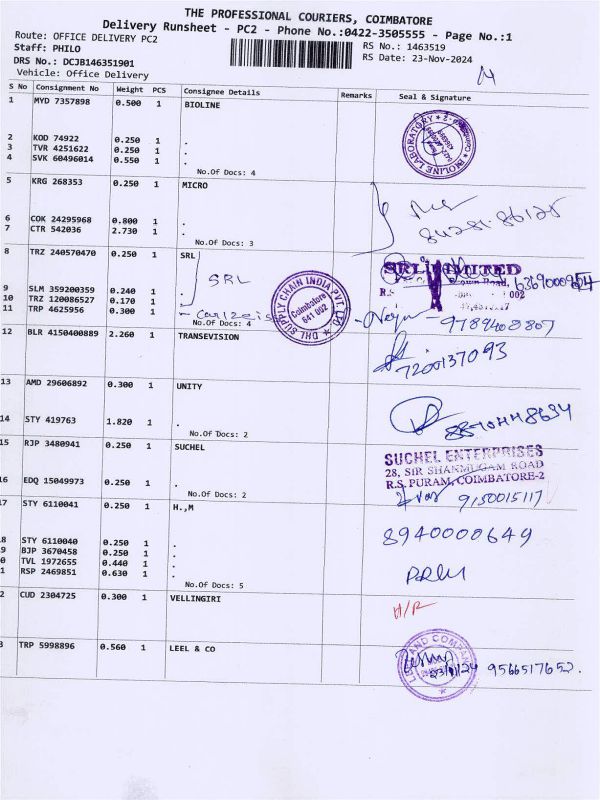 THE PROFESSIONAL COURIERS, COIMBATORE
Delivery Runsheet - PC2 - Phone No.:0422-3505555 - Page No.:1
Route: OFFICE DELIVERY PC2
RS No.: 1463519
Staff: PHILO
RS Date: 23-Nov-2024
DRS No.: DCJB146351901
Vehicle: Office Delivery
S No Consignment No Weight PCS Consignee Details Remarks Seal & Signature
1 MYD 7357898 0.500 1 BIOLINE
BIOLINE LABORATORY
2 KOD 74922 0.250 1 .
3 TVR 4251622 0.250 1 .
4 SVK 60496014 0.550 1 .
No.Of Docs: 4
5 KRG 268353 0.250 1 MICRO
6 COK 24295968 0.800 1 .
7 CTR 542036 2.730 1 .
No.Of Docs: 3
8 TRZ 240570470 0.250 1 SRL
SRL LIMITED
SRL
R.S. 002
6369000954
9 SLM 359200359 0.240 1 .
10 TRZ 120086527 0.170 1 .
11 TRP 4625956 0.300 1 .
No.Of Docs: 4
DHL SUPPLY CHAIN INDIA PVT. LTD
Coimbatore
641 002
9789408807
12 BLR 4150400889 2.260 1 TRANSEVISION
7200137093
13 AMD 29606892 0.300 1 UNITY
14 STY 419763 1.820 1 .
No.Of Docs: 2
15 RJP 3480941 0.250 1 SUCHEL
SUCHEL ENTERPRISES
28, SIR SHANMUGAM ROAD
R.S. PURAM, COIMBATORE-2
16 EDQ 15049973 0.250 1 .
No.Of Docs: 2
9150015117
17 STY 6110041 0.250 1 H.,M
8940000649
18 STY 6110040 0.250 1 .
9 BJP 3670458 0.250 1 .
0 TVL 1972655 0.440 1 .
1 RSP 2469851 0.630 1 .
No.Of Docs: 5
2 CUD 2304725 0.300 1 VELLINGIRI
H/R
3 TRP 5998896 0.560 1 LEEL & CO
23/11/24 9566517652.